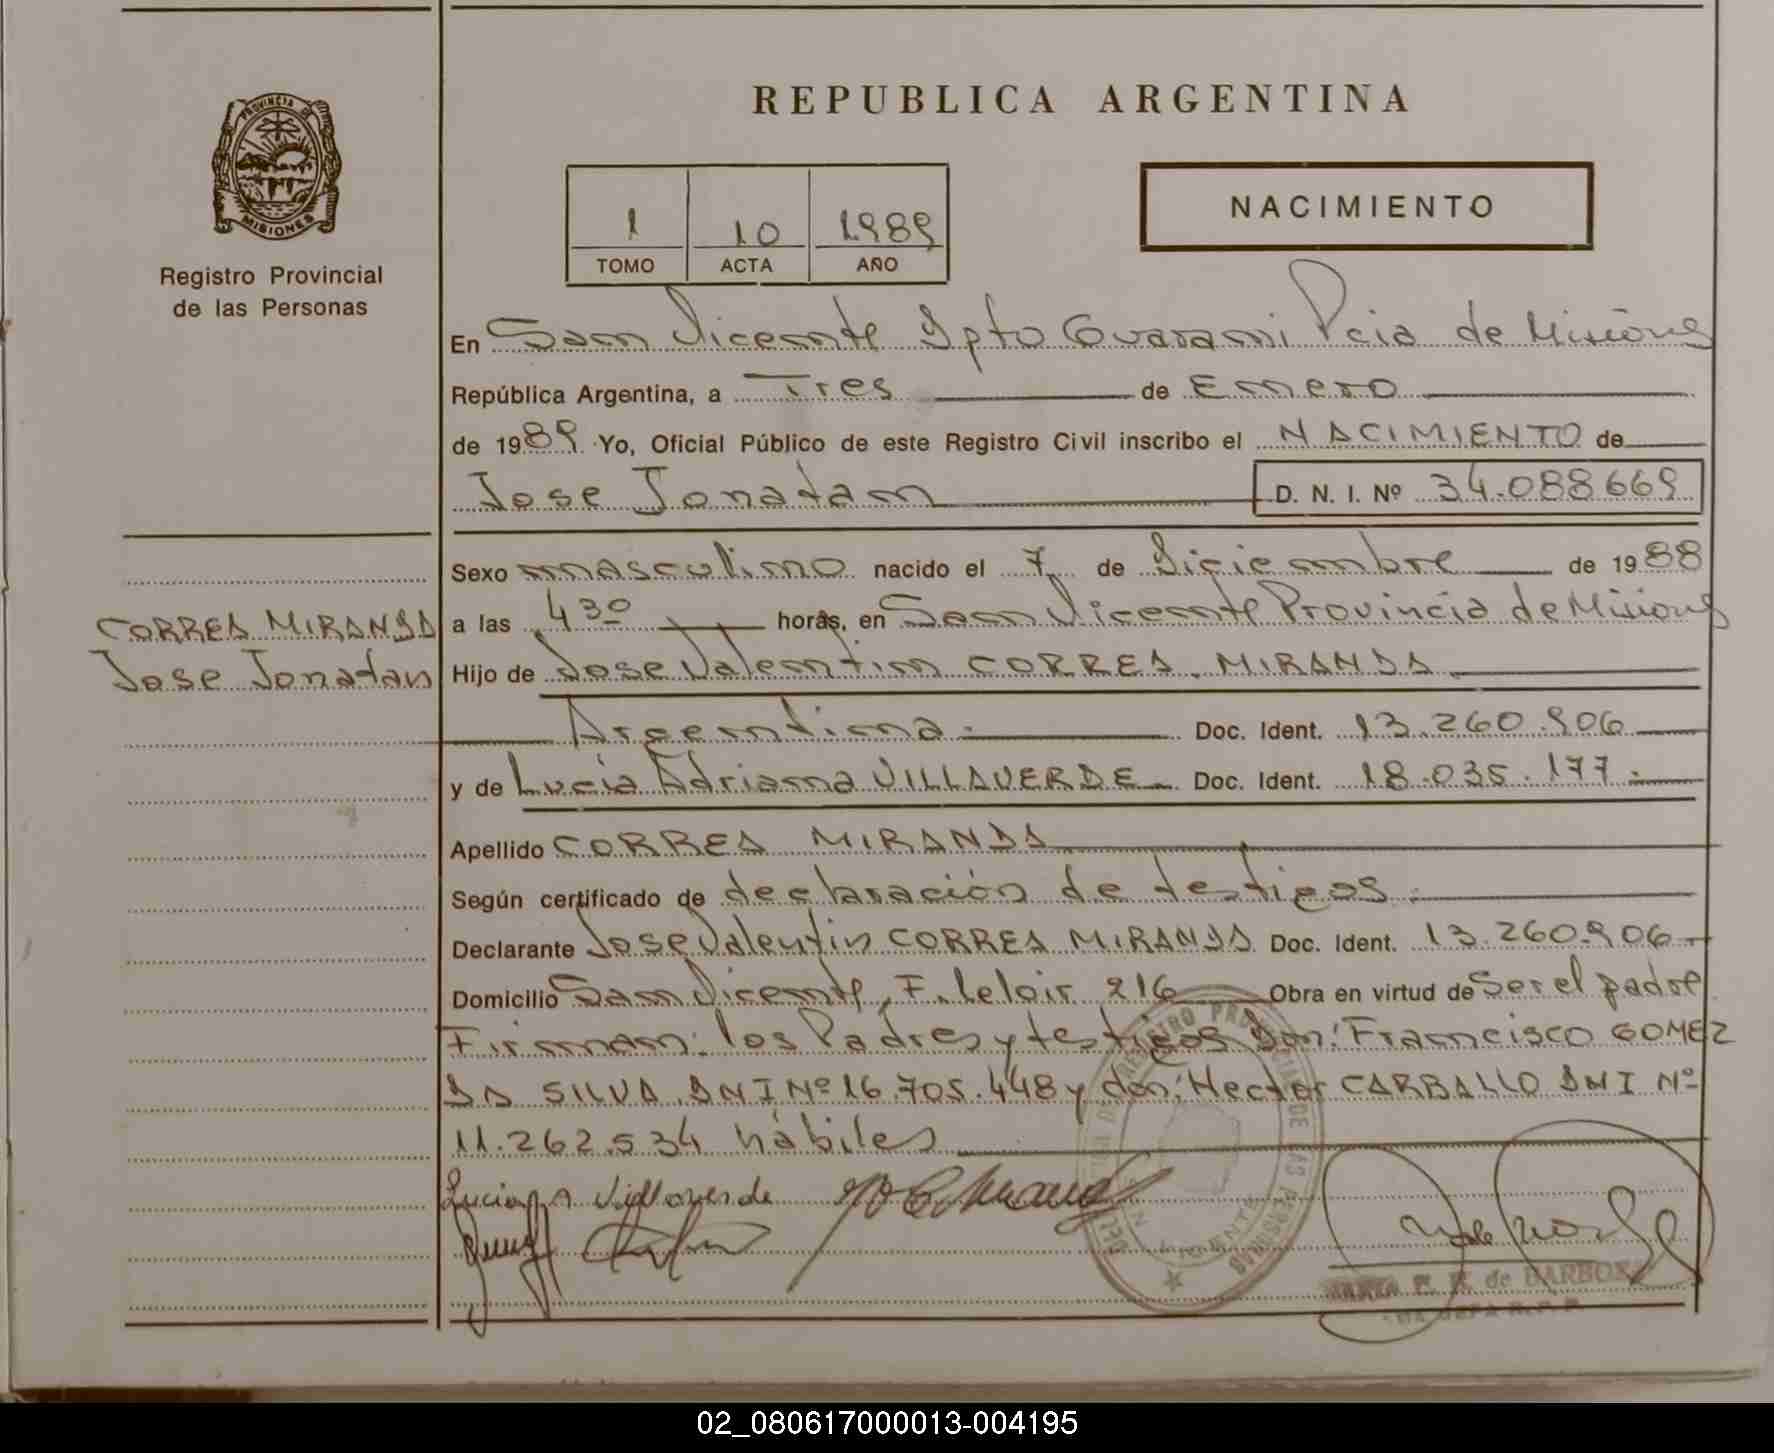 REPUBLICA ARGENTINA
PROVINCIA DE
MISIONES
Registro Provincial
de las Personas
1 10 1989
TOMO ACTA AÑO
NACIMIENTO
En San Vicente Dpto Guarani Pcia de Misiones
República Argentina, a Tres de Enero
de 1989 Yo, Oficial Público de este Registro Civil inscribo el NACIMIENTO de
Jose Jonatan D. N. I. Nº 34.088669
Sexo masculino nacido el 7 de Diciembre de 1988
CORREA MIRANDA
Jose Jonatan
a las 4 30 horas, en San Vicente Provincia de Misiones
Hijo de Jose Valentin CORREA MIRANDA
Argentina.- Doc. Ident. 13.260.906
y de Lucia Adriana VILLAVERDE Doc. Ident. 18.035.177.-
Apellido CORREA MIRANDA
Según certificado de declaración de testigos.-
Declarante Jose Valentin CORREA MIRANDA Doc. Ident. 13.260.906
Domicilio San Vicente, F. Leloir 216 Obra en virtud de Ser el padre
Firman: los Padres y testigos Don: Francisco GOMEZ
DA SILVA DNI Nº 16.705.448 y don: Hector CARBALLO DNI Nº
11.262.534 hábiles
Lucia A Villaverde
REGISTRO PROVINCIAL DE LAS PERSONAS
de BARBOZA
02_080617000013-004195